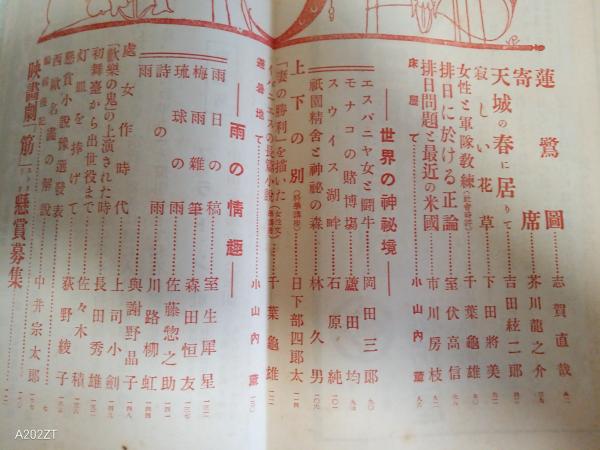 蓮鷺圖 志賀直哉
寄席 芥川龍之介
天城の春に居りて 吉田絃二郎
寂しい花草 下田將美
女性と軍隊教練 千葉龜雄
排日に於ける正論 室伏高信
排日問題と最近の米國 市川房枝
床屋にて 小山内薫
世界の神秘境
エスパニヤ女と闘牛 岡田三郎
モナコの賭博場 蘆田均
スウイス湖畔 石原純
祇園精舎と神秘の森 林久男
上下の別 日下部四郎太
「妻の勝利」を描いた 千葉龜雄
避暑地にて 小山内薫
雨の情趣
雨日の稿 室生犀星
梅雨雜筆 森田恒友
琉球の雨 佐藤惣之助
詩の雨 川路柳虹
雨 與謝野晶子
處女作時代 上司小劍
「歡樂の鬼」の上演された時 長田秀雄
初舞臺から出世役まで 佐々木積
灯皿を捧げて 荻野綾子
懸賞小說豫選發表
西歐名畫の解說 中井宗太郎
編輯後記
映畫劇「筋」懸賞募集
A202ZT